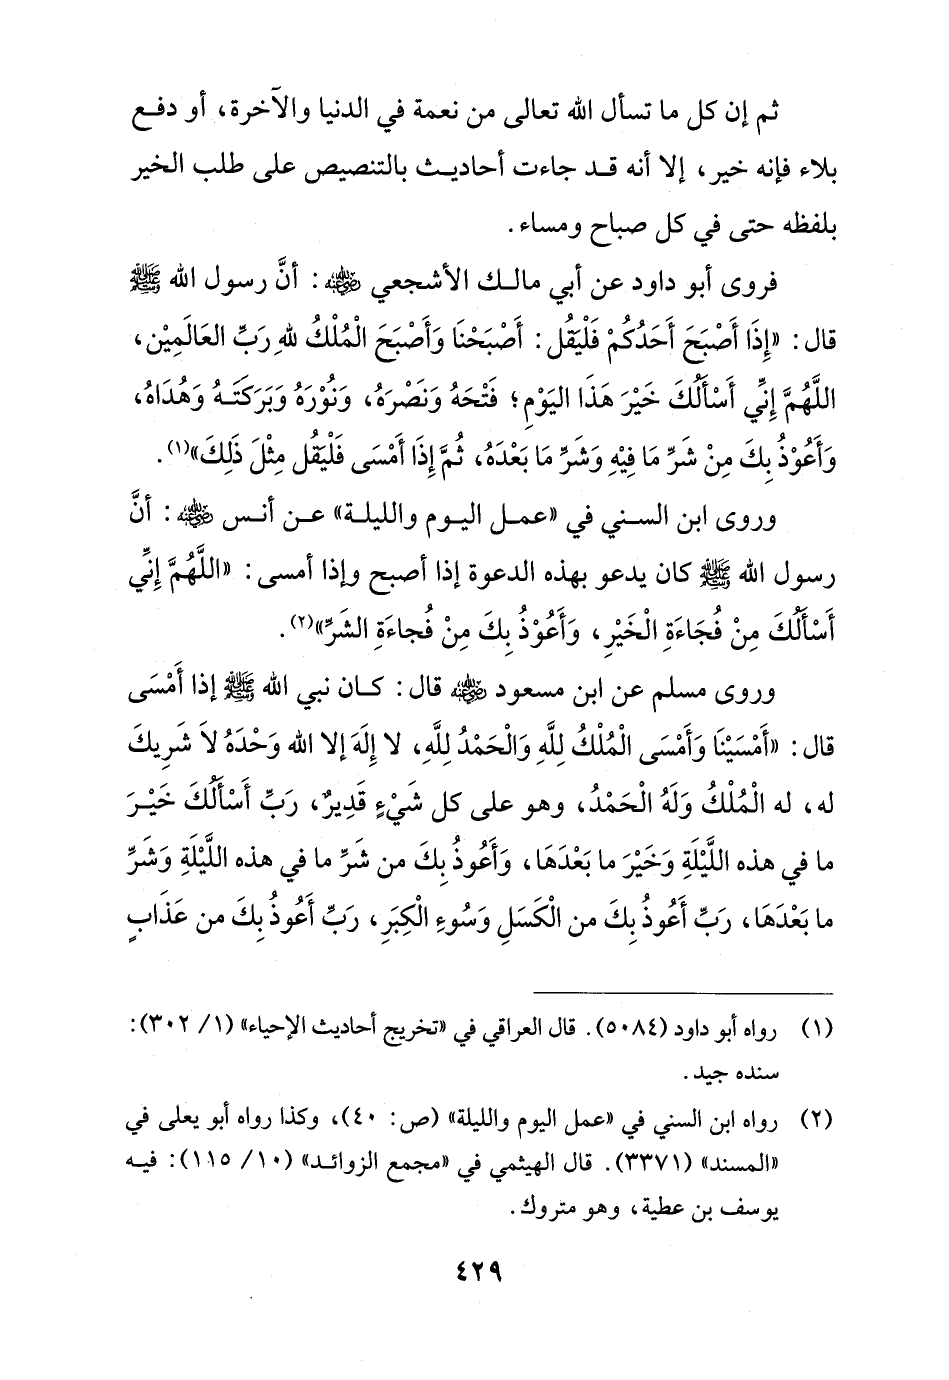 ثم إن كل ما تسأل الله تعالى من نعمة في الدنيا والآخرة، أو دفع
بلاء فإنه خير، إلا أنه قد جاءت أحاديث بالتنصيص على طلب الخير
بلفظه حتى في كل صباح ومساء.
فروى أبو داود عن أبي مالك الأشجعي رضي الله عنه: أنَّ رسول الله ﷺ
قال: «إِذَا أَصْبَحَ أَحَدُكُمْ فَلْيَقُل: أَصْبَحْنَا وَأَصْبَحَ الْمُلْكُ للهِ رَبِّ العَالَمِيْن،
اللَّهُمَّ إِنِّي أَسْأَلُكَ خَيْرَ هَذَا اليَوْمِ؛ فَتْحَهُ وَنَصْرَهُ، وَنُوْرَهُ وَبَرَكَتَهُ وَهُدَاهُ،
وَأَعُوْذُ بِكَ مِنْ شَرِّ مَا فِيْهِ وَشَرِّ مَا بَعْدَهُ، ثُمَّ إِذَا أَمْسَى فَلْيَقُل مِثْلَ ذَلِكَ»(١).
وروى ابن السني في «عمل اليوم والليلة» عن أنس رضي الله عنه: أنَّ
رسول الله ﷺ كان يدعو بهذه الدعوة إذا أصبح وإذا أمسى: «اللَّهُمَّ إِنِّي
أَسْأَلُكَ مِنْ فُجَاءَةِ الْخَيْرِ، وَأَعُوْذُ بِكَ مِنْ فُجاءَةِ الشَرِّ»(٢).
وروى مسلم عن ابن مسعود رضي الله عنه قال: كان نبي الله ﷺ إذا أَمْسَى
قال: «أَمْسَيْنَا وَأَمْسَى الْمُلْكُ لِلَّهِ وَالْحَمْدُ لِلَّهِ، لا إِلَهَ إلا الله وَحْدَهُ لاَ شَرِيكَ
له، له الْمُلْكُ وَلَهُ الْحَمْدُ، وهو على كل شَيْءٍ قَدِيرٌ، رَبِّ أَسْأَلُكَ خَيْرَ
ما في هذه اللَّيْلَةِ وَخَيْرَ ما بَعْدَهَا، وَأَعُوذُ بِكَ من شَرِّ ما في هذه اللَّيْلَةِ وَشَرِّ
ما بَعْدَهَا، رَبِّ أَعُوذُ بِكَ من الْكَسَلِ وَسُوءِ الْكِبَرِ، رَبِّ أَعُوذُ بِكَ من عَذَابٍ
(١) رواه أبو داود (٥٠٨٤). قال العراقي في «تخريج أحاديث الإحياء» (١/ ٣٠٢):
سنده جيد.
(٢) رواه ابن السني في «عمل اليوم والليلة» (ص: ٤٠)، وكذا رواه أبو يعلى في
«المسند» (٣٣٧١). قال الهيثمي في «مجمع الزوائد» (١٠/ ١١٥): فيه
يوسف بن عطية، وهو متروك.
٤٢٩